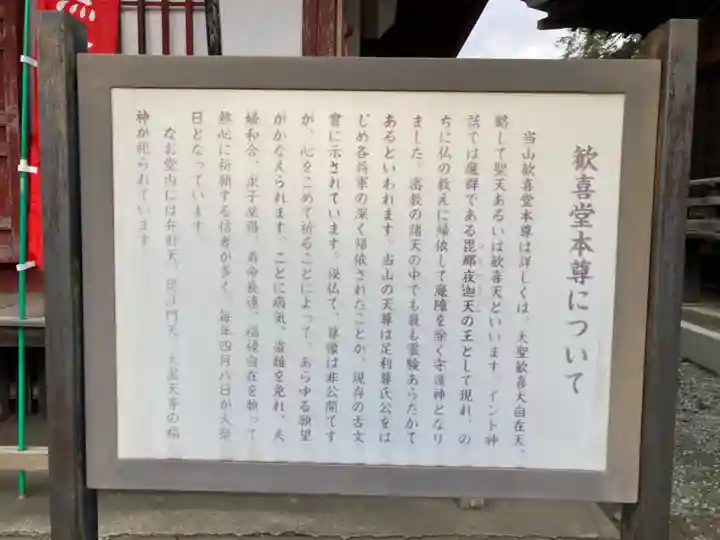 歓喜堂本尊について
当山歓喜堂本尊は詳しくは、大聖歓喜大自在天、
略して聖天あるいは歓喜天といいます。インド神
話では魔群である毘那夜迦天の王として現れ、の
ちに仏の教えに帰依して魔障を除く守護神となり
ました。密教の諸天の中でも最も霊験あらたかで
あるといわれます。当山の天尊は足利尊氏公をは
じめ各将軍の深く帰依されたことが、現存の古文
書に示されています。秘仏で、尊像は非公開です
が、心をこめて祈ることによって、あらゆる願望
がかなえられます。ことに病気、盗難を免れ、夫
婦和合、求子必得、寿命長遠、福徳自在を願って
熱心に祈願する信者が多く、毎年四月八日が大祭
日となっています。
なお堂内には弁財天、毘沙門天、大黒天等の福
神が祀られています